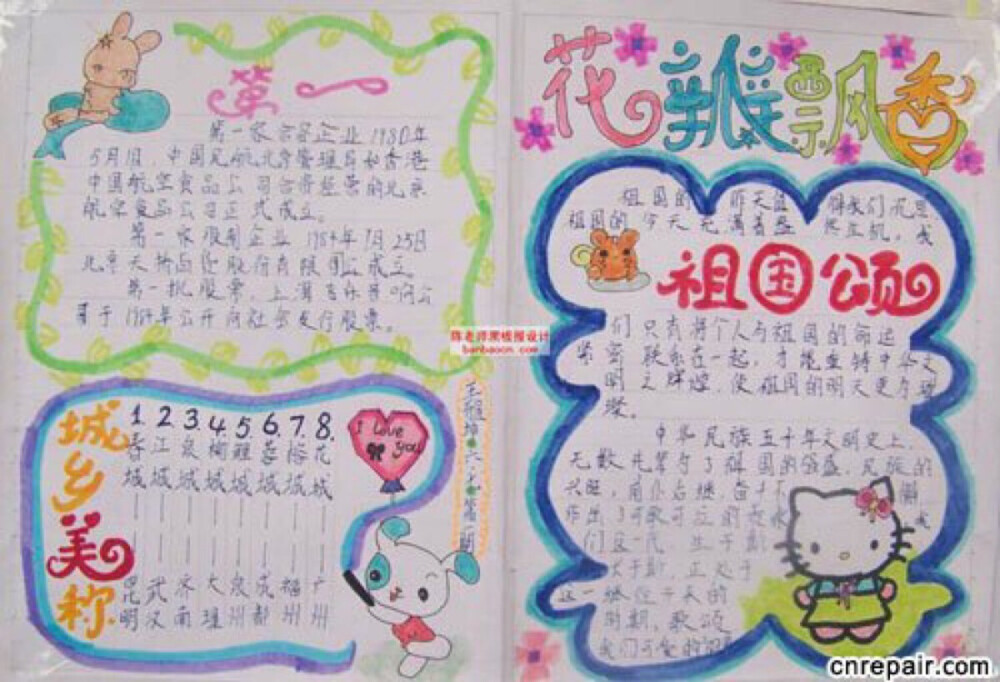 第一
第一家合资企业 1980年
5月1日,中国民航北京管理局和香港
中国航空食品公司合资经营的北京
航空食品公司正式成立。
第一家股份企业 1984年7月25日
北京天桥百货股份有限公司成立
第一批股票,上海飞乐音响公
司于1984年公开向社会发行股票。
陈老师黑板报设计
banbaocn.com
城乡美称
1. 2. 3. 4. 5. 6. 7. 8.
春 江 泉 榆 鲤 蓉 榕 花
城 城 城 城 城 城 城 城
昆 武 济 大 泉 成 福 广
明 汉 南 理 州 都 州 州
I love
you
花瓣飘香
祖国的 昨天值 得我们沉思
祖国的今天充满着盎 然生机,我
祖国颂
们只有将个人与祖国的命运
紧密联系在一起,才能重铸中华文
明之辉煌,使祖国的明天更加璀
璨。
中华民族五千年文明史上,
无数先辈为了祖国的强盛,民族的
兴旺,前仆后继,奋
作出了可歌可泣的
们这一代 生于
长于 正处于
这一
时期,歌颂
我们可爱的祖国
cnrepair.com